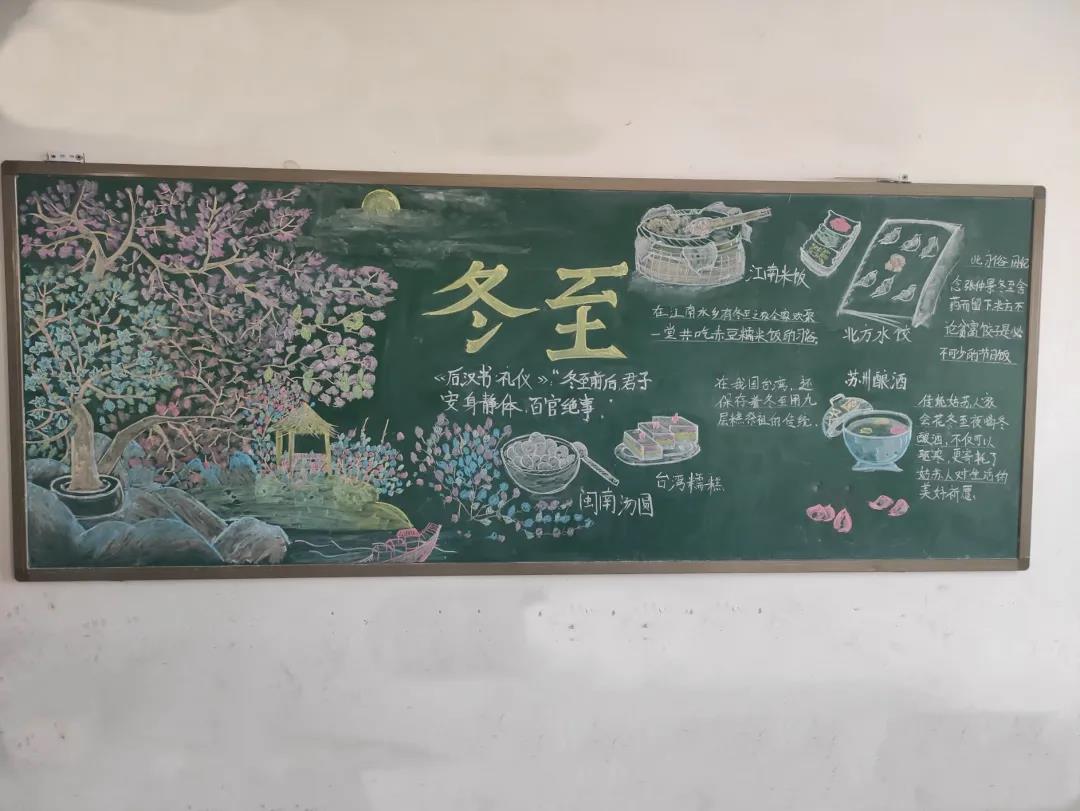 冬至
《后汉书·礼仪》:"冬至前后,君子
安身静体,百官绝事。"
江南米饭
在江南水乡有冬至之夜全家欢聚
一堂共吃赤豆糯米饭的习俗
北方水饺
念张仲景冬至舍
药而留下来的不
论贫富饺子是必
不可少的节日饭
闽南汤圆
台湾糯糕
在我国台湾,还
保存着冬至用九
层糕祭祖的传统。
苏州酿酒
传统姑苏人家
会在冬至夜喝冬
酿酒,不仅可以
驱寒,更寄托了
姑苏人对生活的
美好祈愿。